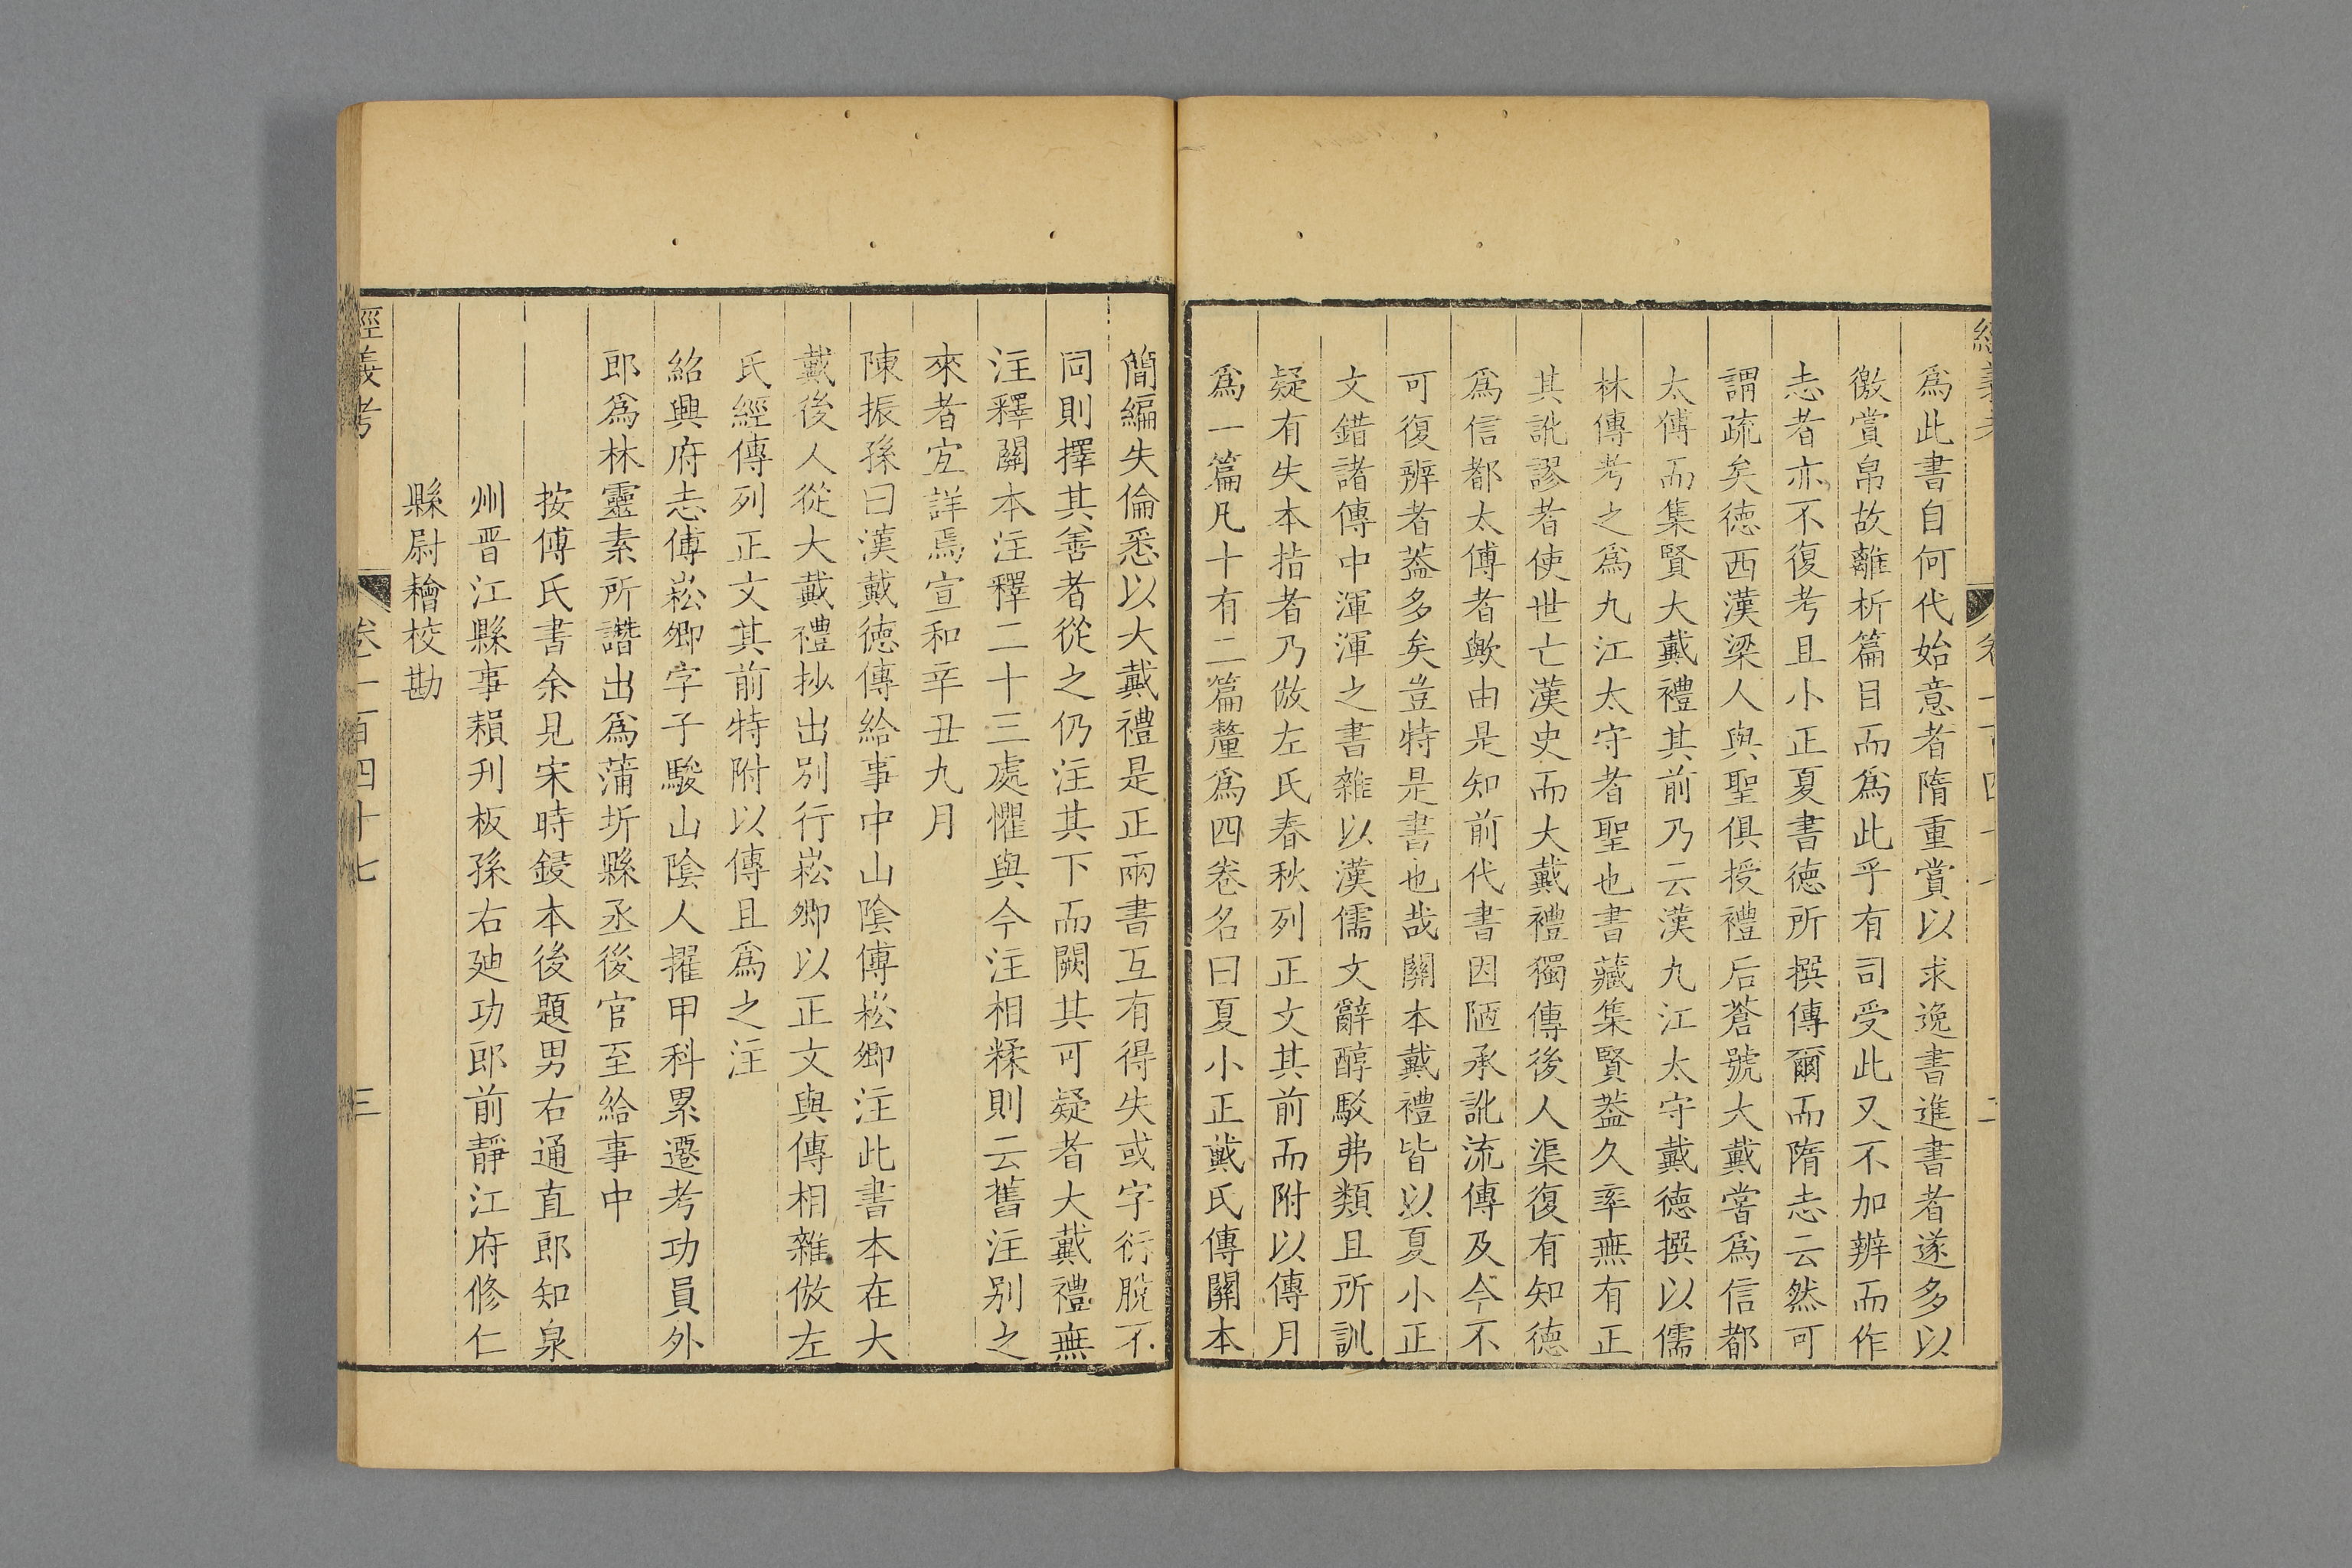 爲此書自何代始意者隋重賞以求逸書進書者遂多以
徼賞帛故離析篇目而爲此乎有司受此又不加辨而作
志者亦不復考且小正夏書德所撰傳爾而隋志云然可
謂疏矣德西漢梁人與聖俱授禮后蒼號大戴嘗爲信都
太傅而集賢大戴禮其前乃云漢九江太守戴德撰以儒
林傳考之爲九江太守者聖也書藏集賢葢久率無有正
其訛謬者使世亡漢史而大戴禮獨傳後人渠復有知德
爲信都太傅者歟由是知前代書因陋承訛流傳及今不
可復辨者葢多矣豈特是書也哉關本戴禮皆以夏小正
文錯諸傳中渾渾之書雜以漢儒文辭醇駁弗類且所訓
疑有失本指者乃倣左氏春秋列正文其前而附以傳月
爲一篇凡十有二篇釐爲四卷名曰夏小正戴氏傳關本
簡編失倫悉以大戴禮是正兩書互有得失或字衍脫不
同則擇其善者從之仍注其下而闕其可疑者大戴禮無
注釋關本注釋二十三處懼與今注相糅則云舊注別之
來者宐詳焉宣和辛丑九月
陳振孫曰漢戴德傳給事中山陰傅崧卿注此書本在大
戴後人從大戴禮抄出別行崧卿以正文與傳相雜倣左
氏經傳列正文其前特附以傳且爲之注
紹興府志傅崧卿字子駿山陰人擢甲科累遷考功員外
郎爲林靈素所譖出爲蒲圻縣丞後官至給事中
按傅氏書余見宋時鋟本後題男右通直郎知泉
州晉江縣事䫶刋板孫右廸功郎前靜江府修仁
縣尉䆂校勘
經義考
卷一百四十七
三